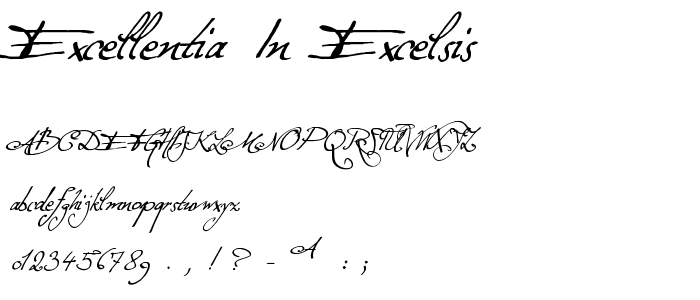 Excellentia In Excelsis
ABCDEFGHIJKLMNOPQRSTUVWXYZ
abcdefghijklmnopqrstuvwxyz
0123456789 . , ! ? - A : ;